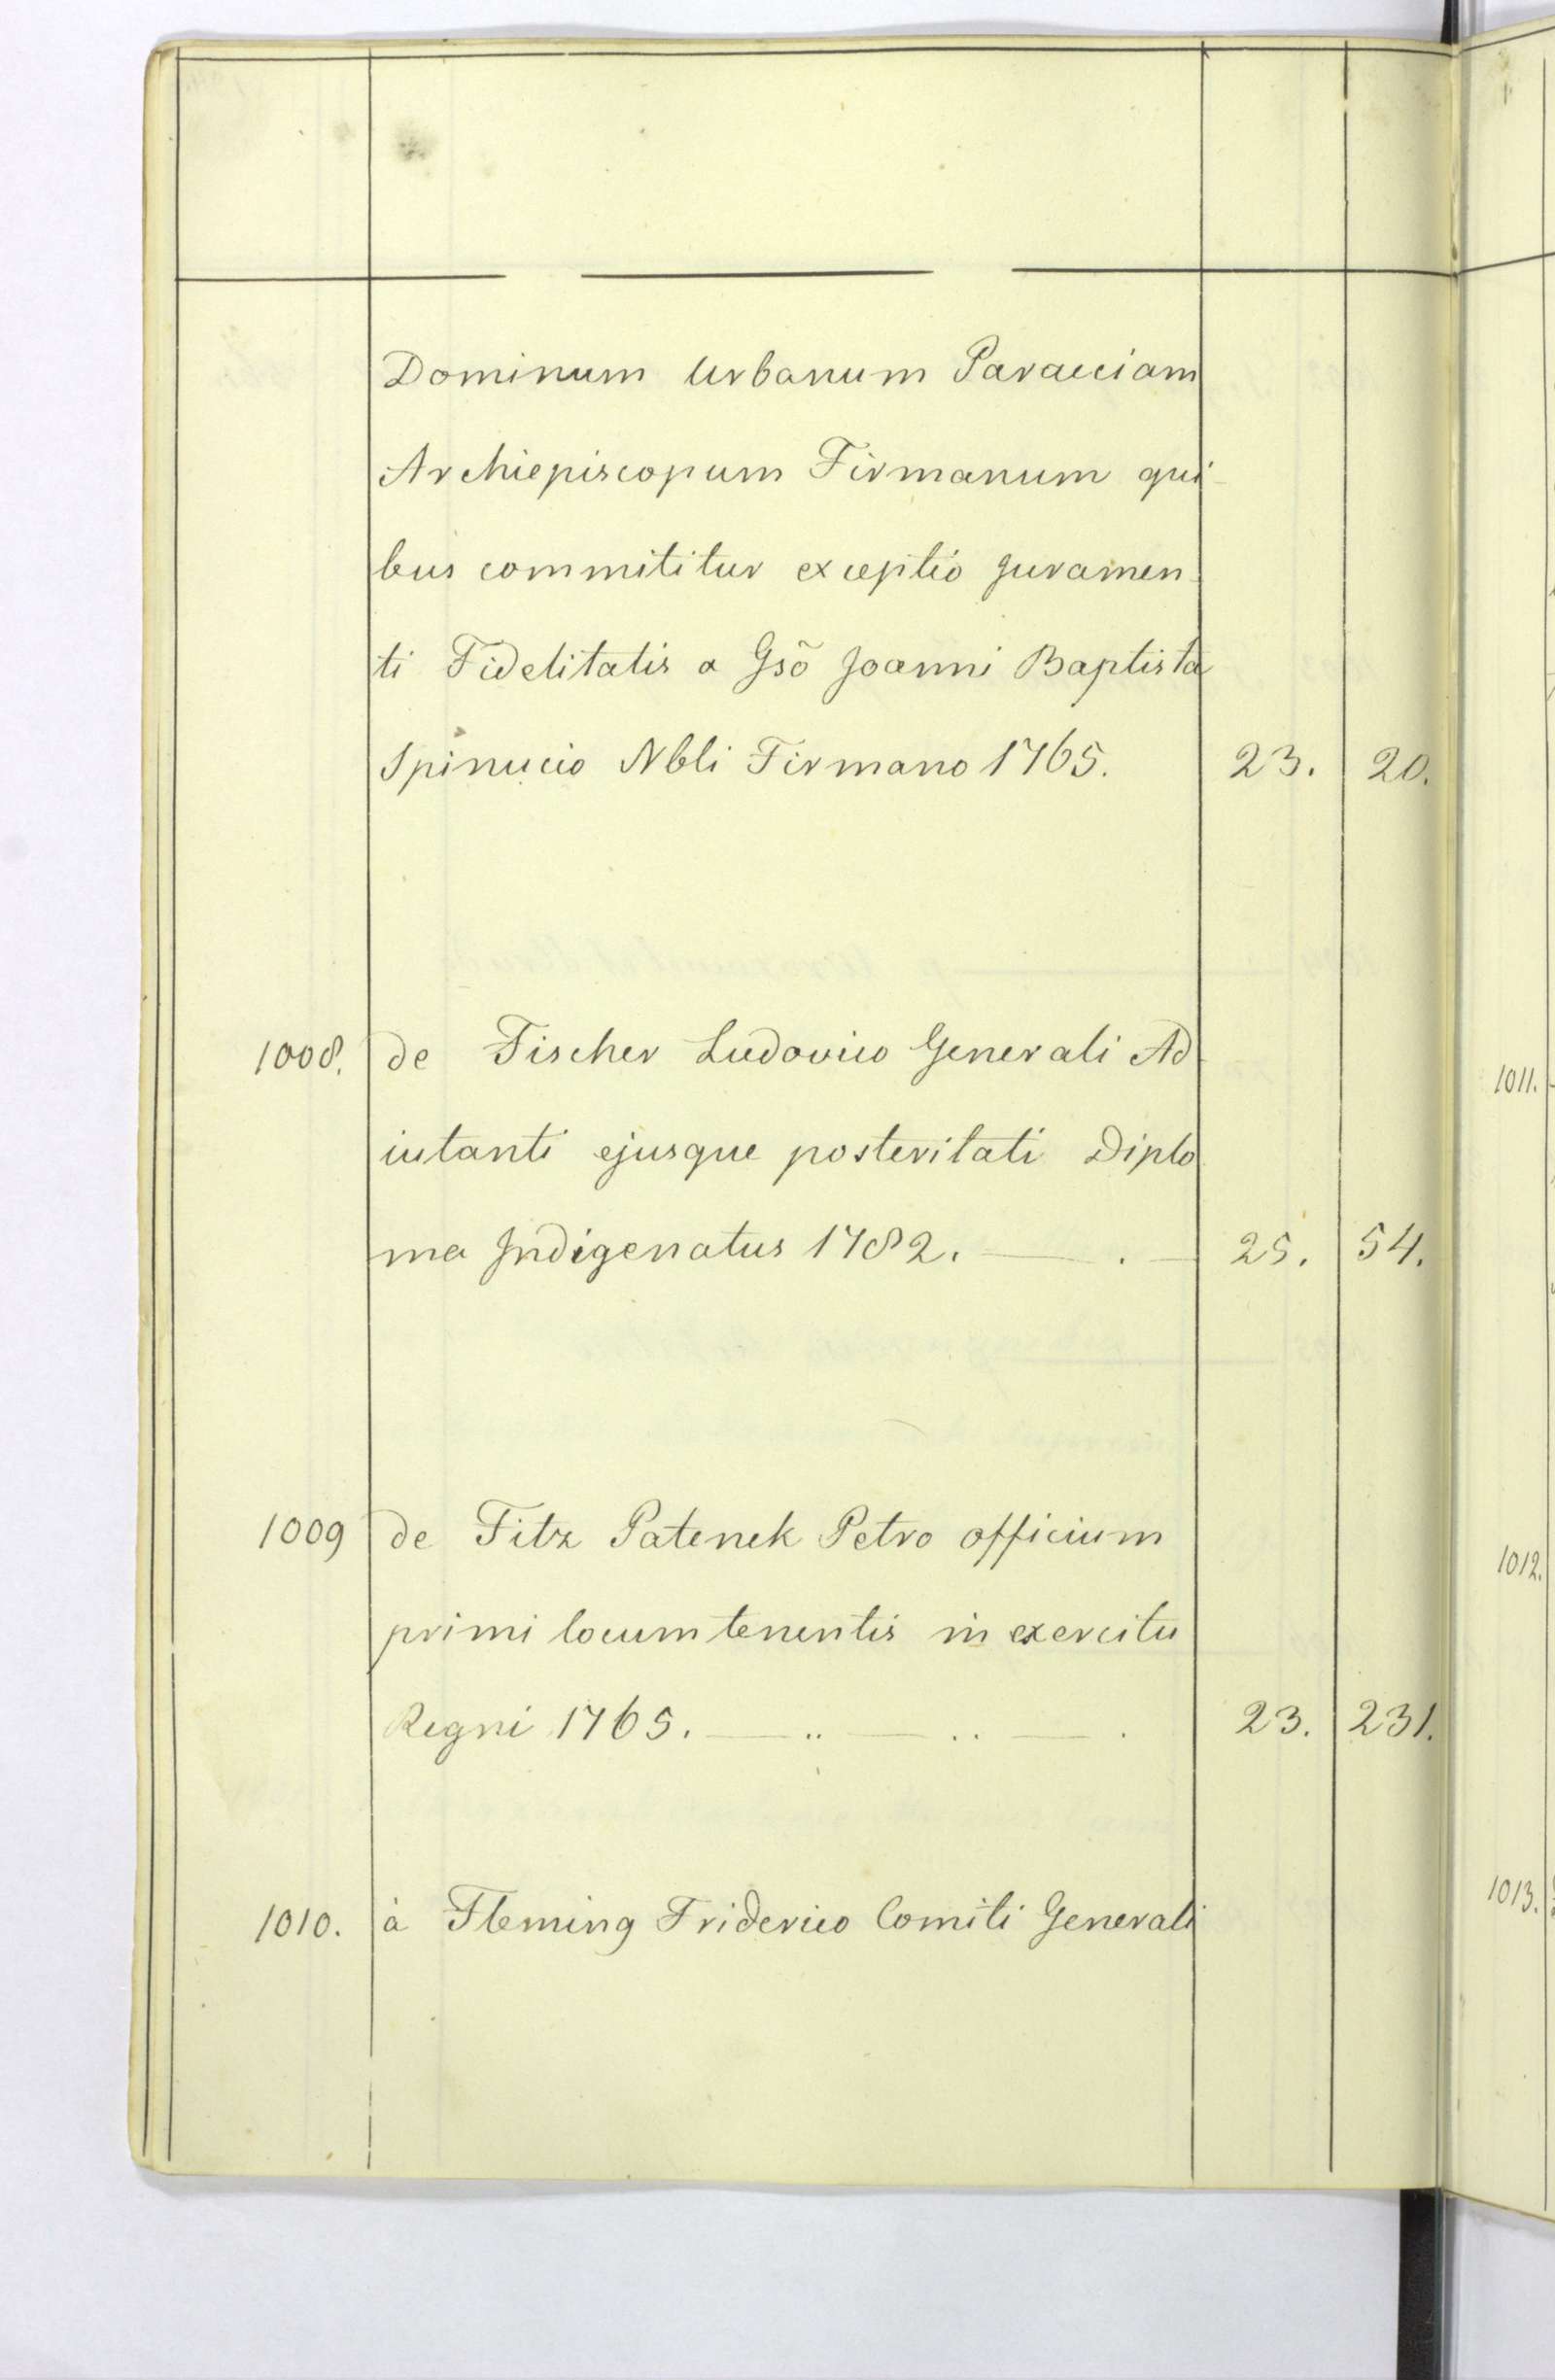 Dominum Urbanum Paracciam
Archiepiscopum Firmanum qui-
bus commititur exceptio Juramen-
ti Fidelitatis a Gsõ Joanni Baptista
Spinucio Nbli Firmano 1765. 23. 20.
1008. de Fischer Ludovico Generali Ad-
iutanti ejusque posteritati Diplo
ma Indigenatus 1782. — . — 25. 54.
1009 de Fitz Patenek Petro officium
primi locumtenentis in exercitu
Regni 1765. — .. — .. — . 23. 231.
1010. à Fleming Friderico Comiti Generali
1011.
1012.
1013.